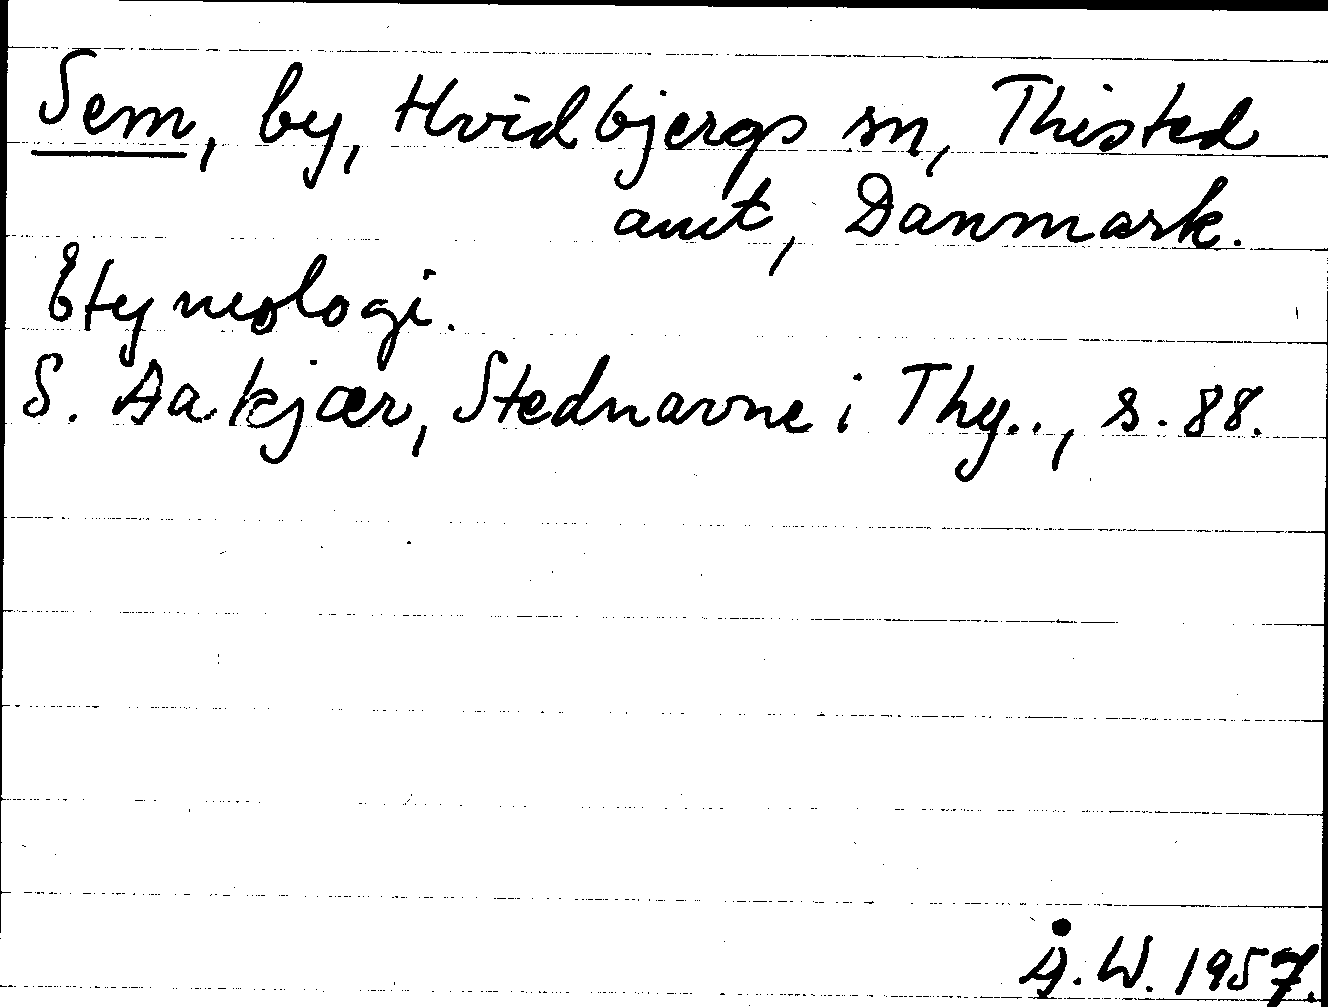 Sem, by, Hvidbjergs sn, Thisted
amt, Danmark.
Etymologi.
S. Aakjær, Stednavne i Thy.., s. 88.
Å.W. 1957.